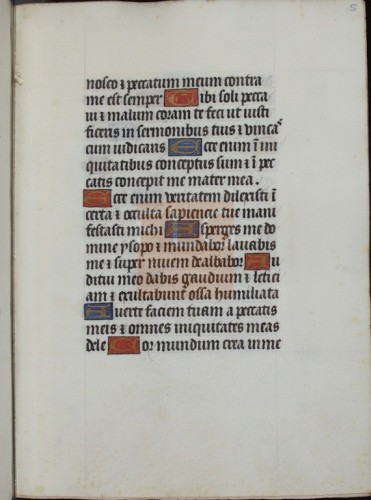 5
nosco ⁊ peccatum meum contra
me est semper Tibi soli pecca
ui ⁊ malum coram te feci ut iusti
ficeris in sermonibus tuis ⁊ vincas
cum iudicaris Ecce enim ī ini
quitatibus conceptus sum ⁊ ī pec
catis concepit me mater mea.
Ecce enim veritatem dilexisti ī
certa ⁊ occulta sapiencie tue mani
festasti michi Asperges me do
mine ysopo ⁊ mundabor lauabis
me ⁊ super niuem dealbabor Au
ditui meo dabis gaudium ⁊ letici
am ⁊ exultabunt ossa humiliata
Auerte faciem tuam a peccatis
meis ⁊ omnes iniquitates meas
dele Cor mundum crea in me